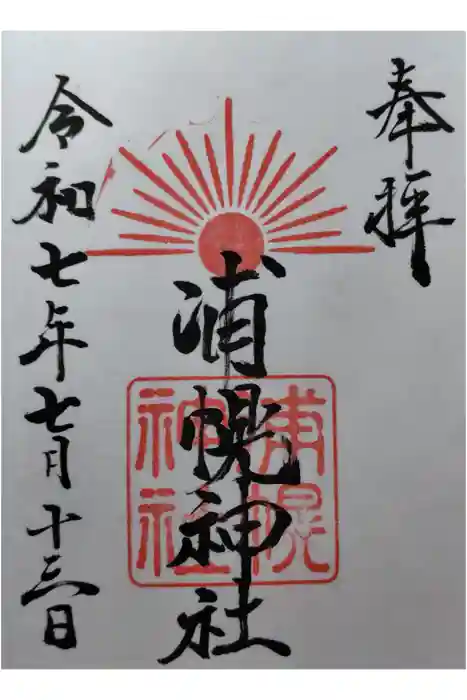 奉拝
浦幌神社
浦幌
神社
令和七年七月十三日